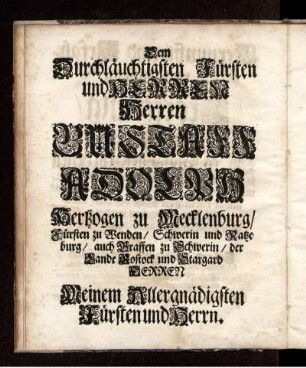 Dem
Durchläuchtigsten Fürsten
und HERREN
Herren
GUSTAFF
ADOLPH
Hertzogen zu Mecklenburg/
Fürsten zu Wenden/ Schwerin und Ratze
burg/ auch Graffen zu Schwerin/ der
Lande Rostock und Stargard
HERREN
Meinem Allergnädigsten
Fürsten und Herrn.